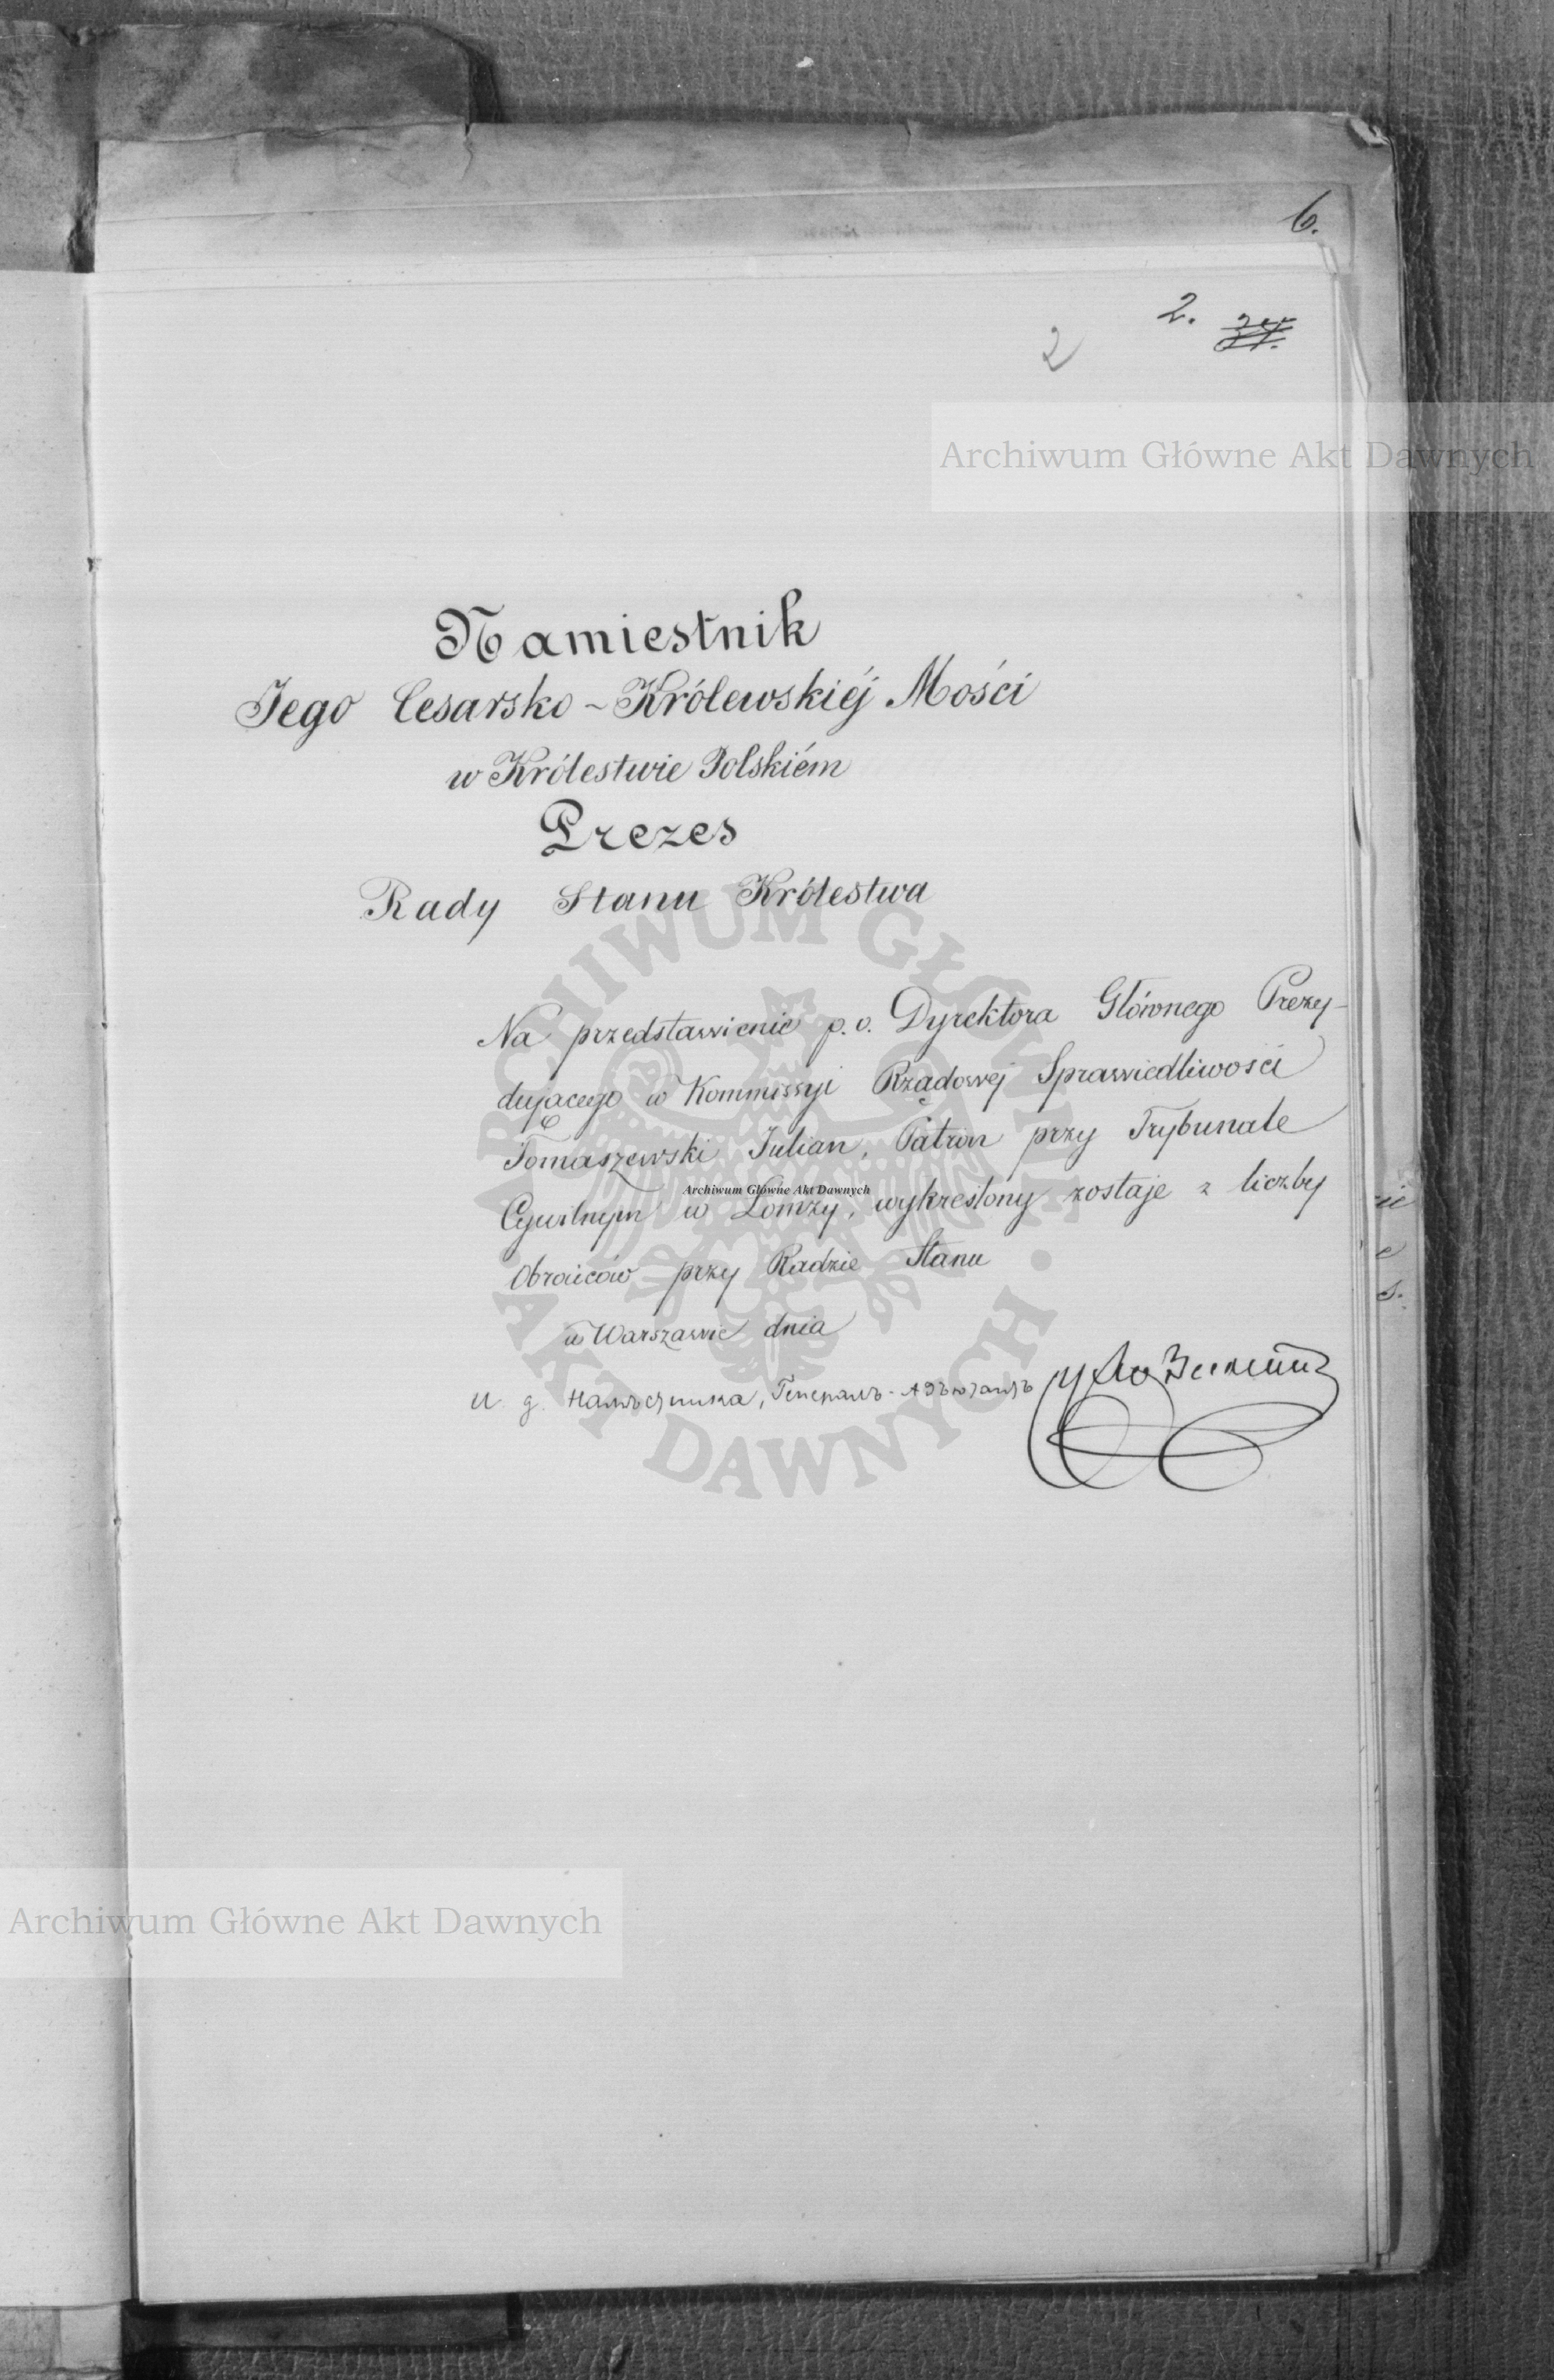 6.
2.
2
Archiwum Główne Akt Dawnych
Namiestnik
Jego Cesarsko-Królewskiéj Mości
w Królestwie Polskiém
Prezes
Rady Stanu Królestwa
Na przedstawienie p.o. Dyrektora Głównego Prezy-
dującego w Kommissyi Rządowej Sprawiedliwości
Tomaszewski Julian, Patron przy Trybunale
Archiwum Główne Akt Dawnych
Cywilnym w Łomży, wykreślony zostaje z liczby
Obrońców przy Radzie Stanu
w Warszawie dnia
И. д. Намѣстника, Генералъ-Адъютантъ
ARCHIWUM GŁÓWNE AKT DAWNYCH
Archiwum Główne Akt Dawnych